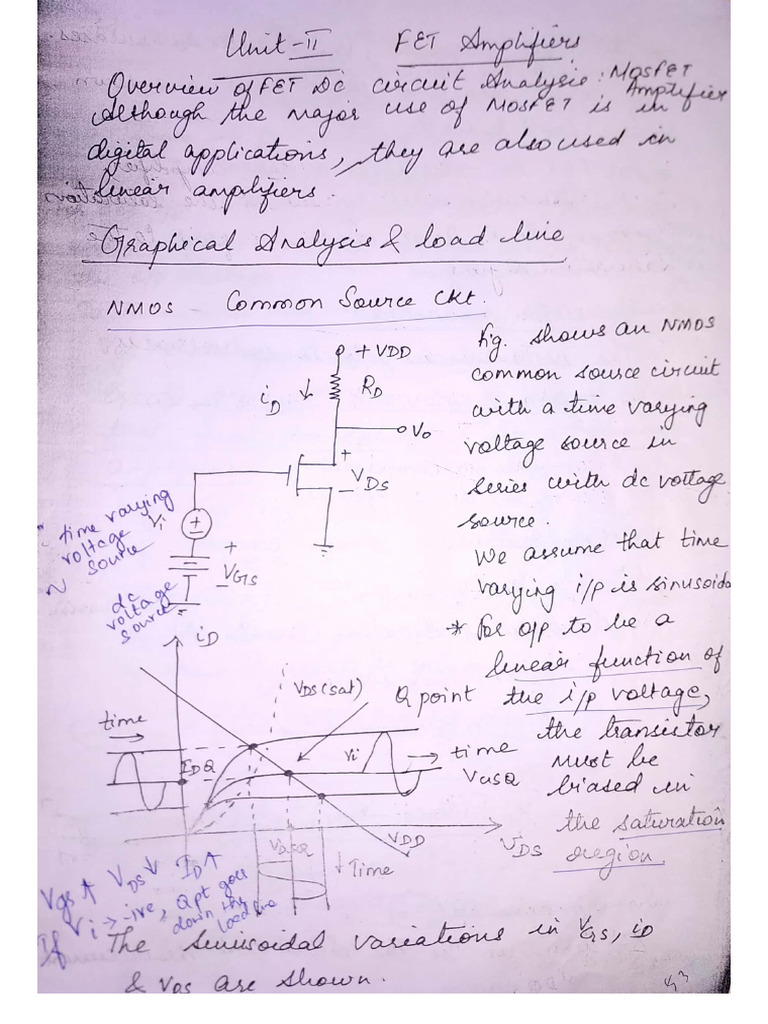 Unit-II FET Amplifiers
Overview of FET DC circuit Analysis: MOSFET Amplifier
Although the major use of MOSFET is in
digital applications, they are also used in
linear amplifiers.
Graphical Analysis & load line
NMOS Common Source Ckt.
+ VDD
iD
RD
Vo
+
VDS
-
Vi
+
+
VGS
-
time varying
voltage
source
dc
voltage
source
fig. shows an NMOS
common source circuit
with a time varying
voltage source in
series with dc voltage
source.
We assume that time
varying i/p is sinusoida
* For o/p to be a
linear function of
the i/p voltage,
the transistor
must be
biased in
the saturation
region.
iD
VDS(sat)
Q point
time
IDQ
Vi
time
VGSQ
VDSQ
VDD
VDS
Time
Vgs ↑ VDS ↓ ID ↑
If Vi → -ive, Q pt goes
down the
load line
The sinusoidal variations in VGS, iD
& VDS are shown.